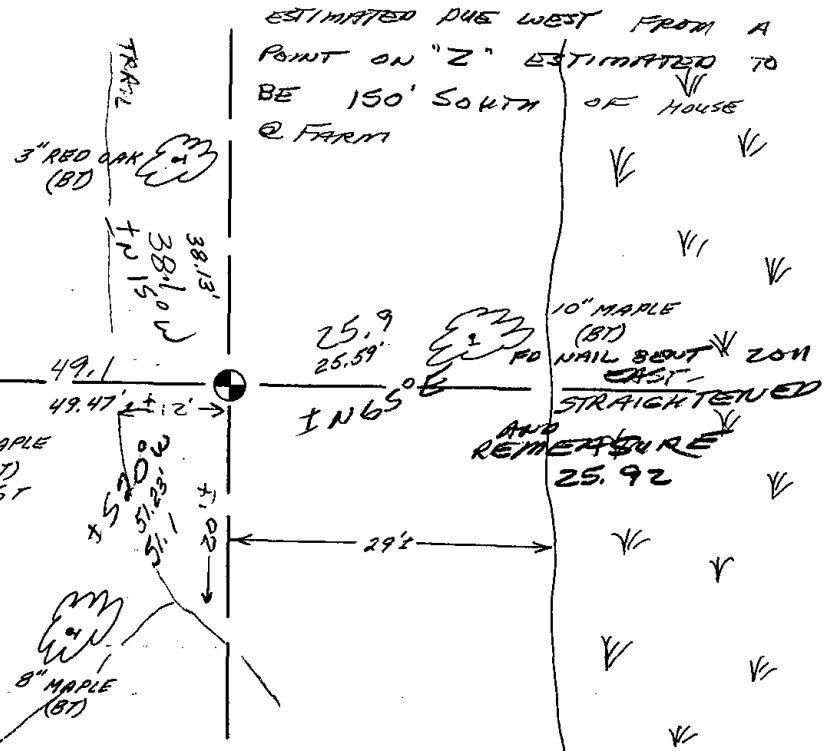 ESTIMATED DUE WEST FROM A
POINT ON "Z" ESTIMATED TO
BE 150' SOUTH OF HOUSE
@ FARM
TRAIL
3" RED OAK
(BT)
38.13'
38.1
± N 15° W
10" MAPLE
(BT)
25.9
25.59'
± N 65° E
FD NAIL BENT 2011
EAST-
STRAIGHTENED
AND
REMEASURE
25.92
49.1
49.47'
±12'
APLE
T)
ST
± S 20° W
51.23'
51.1
±, 02
29'±
8" MAPLE
(BT)